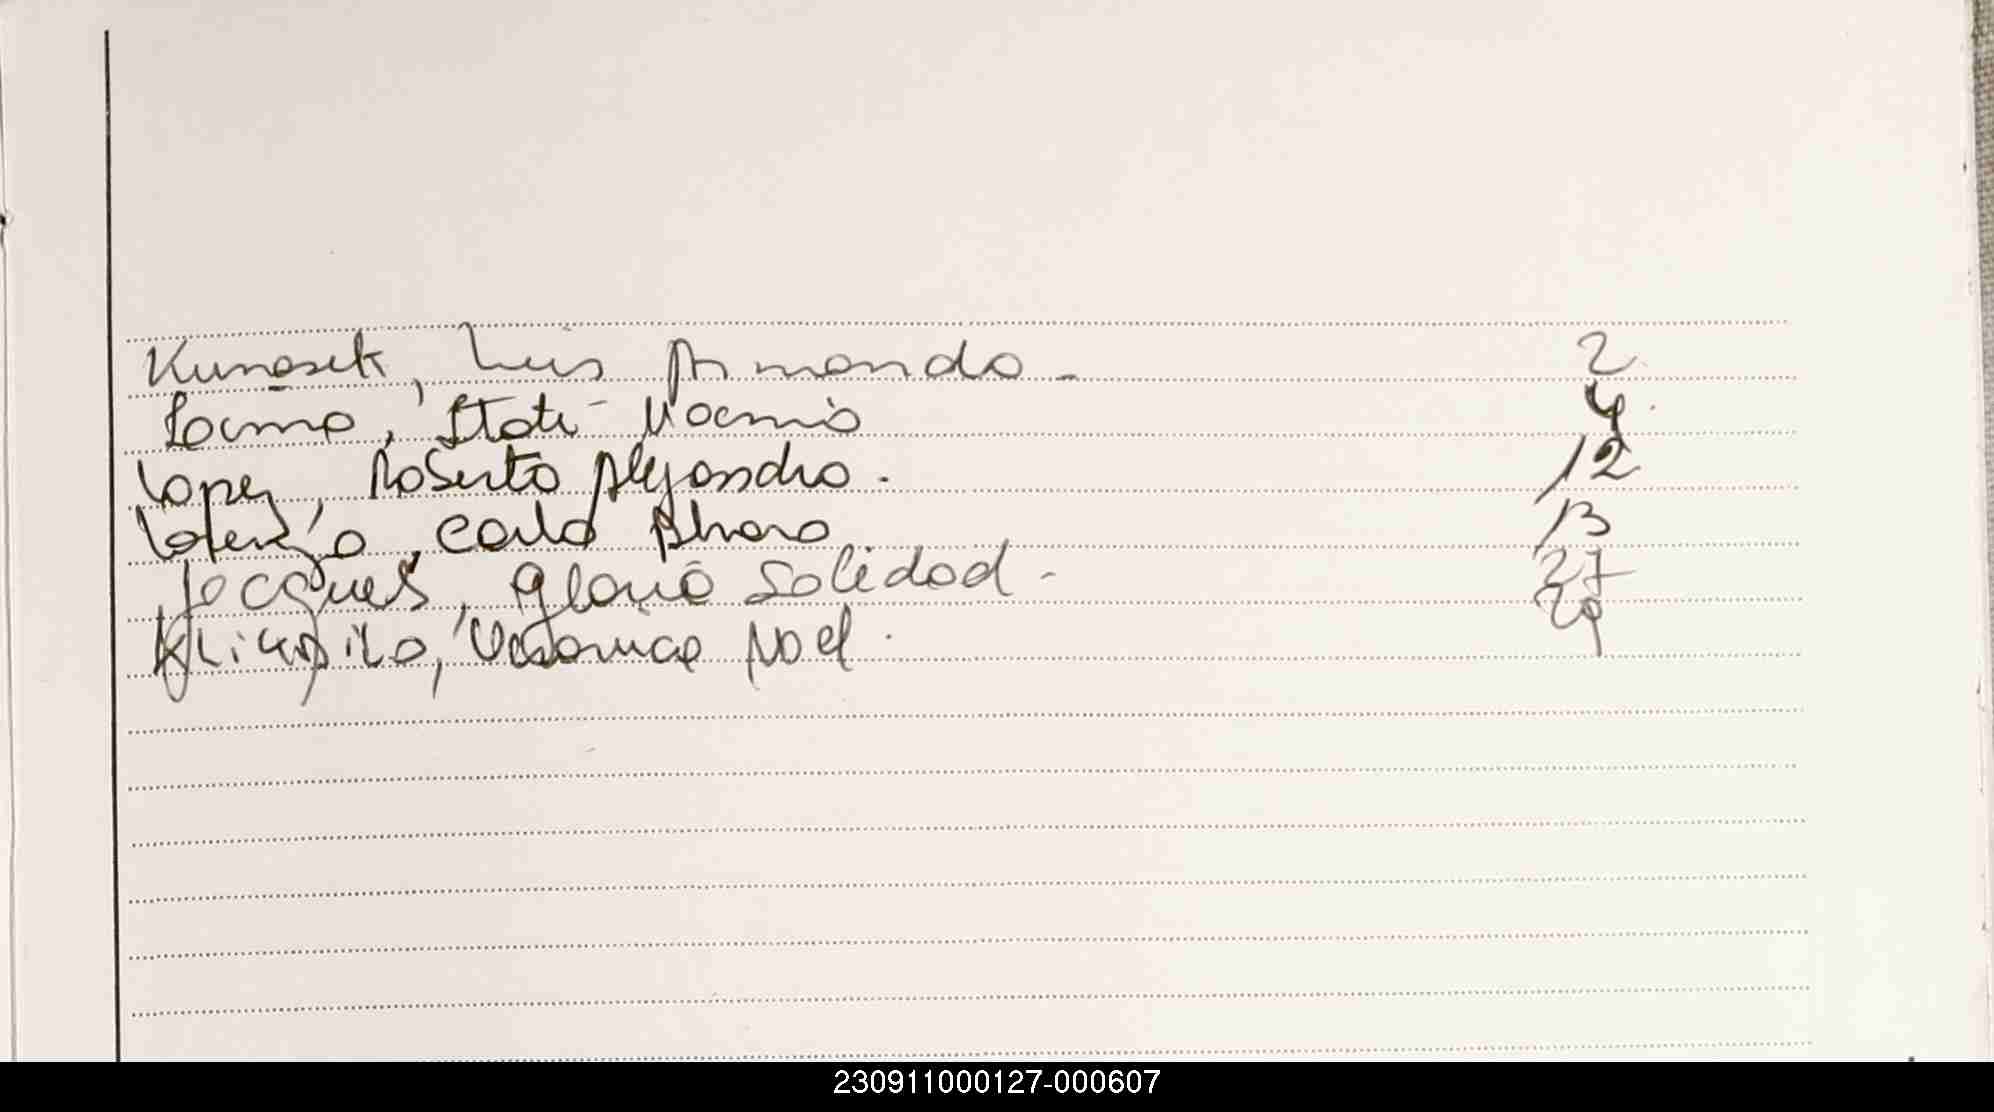 Kunasek, Luis Armando - 2
Locmo, Itati Noemis 4
Lopez, Roberto Alejandro. 12
Carlo Alvaro 13
Jacques, Gloria Soledad - 27
Veronica Noel. 29
230911000127-000607